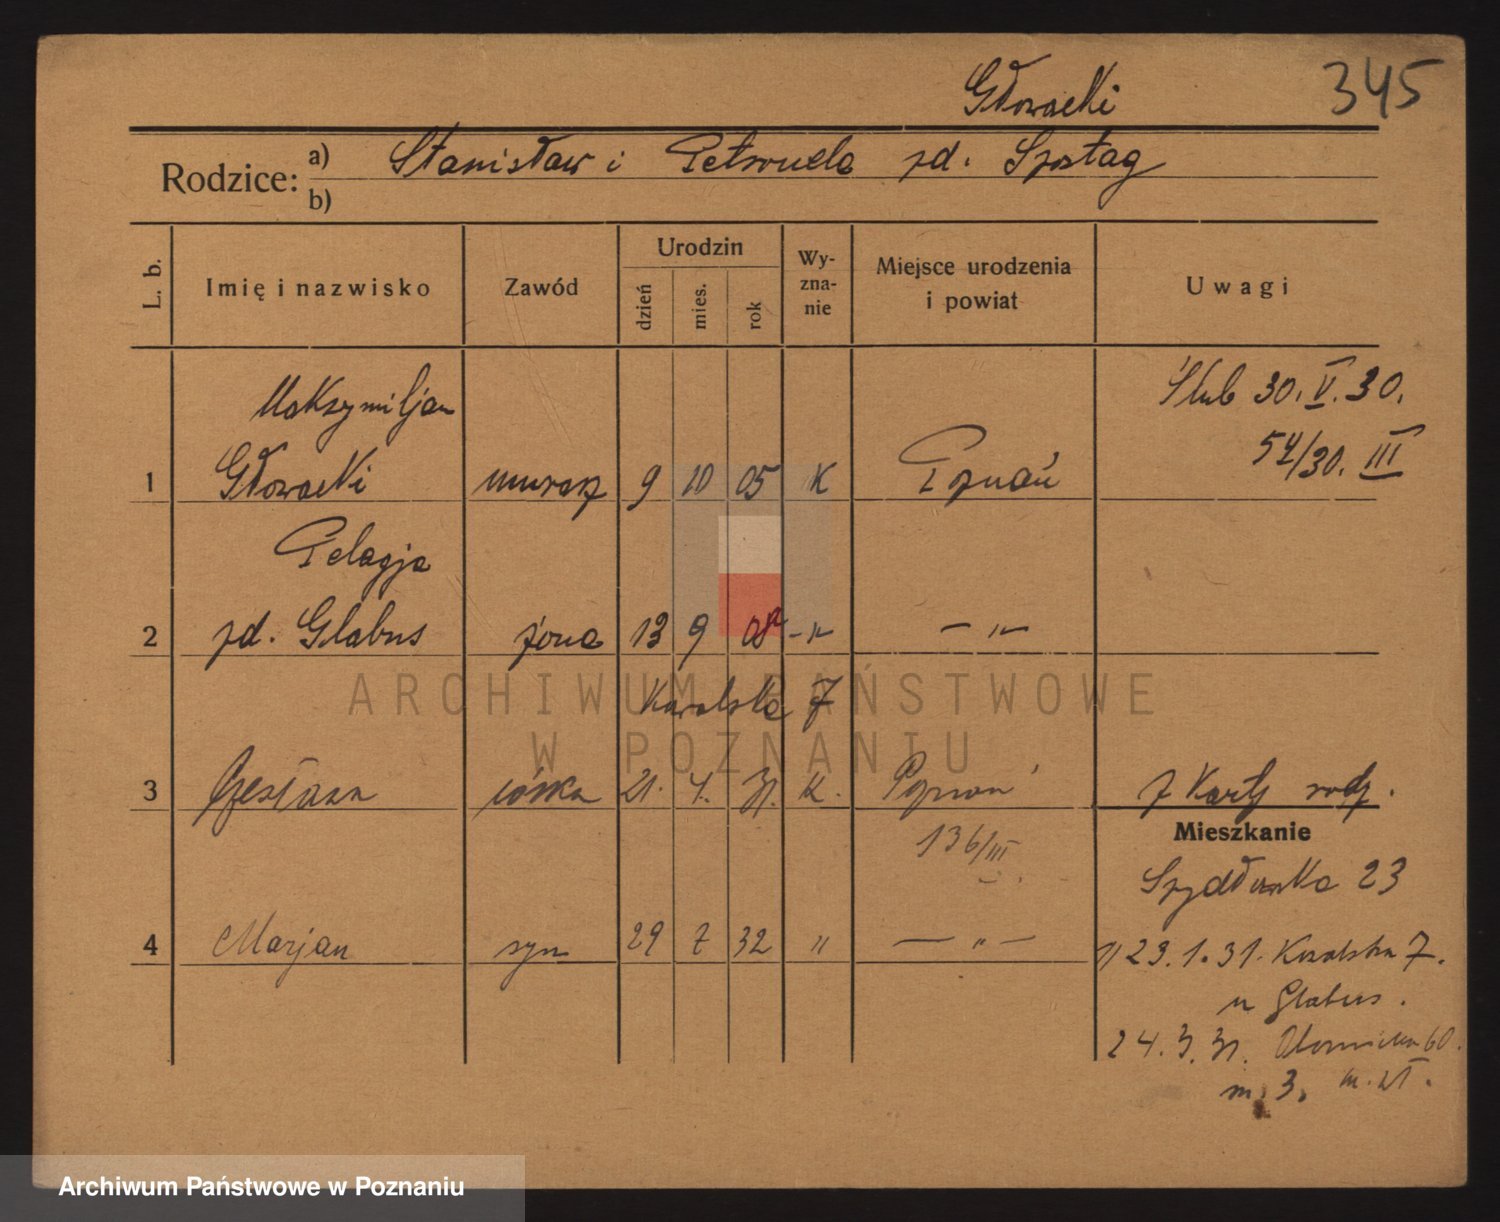 Głowacki
345
Rodzice: a) Stanisław i Petronela zd. Szostag
b)
L. b.
Imię i nazwisko
Zawód
Urodzin
dzień
mies.
rok
Wy-
zna-
nie
Miejsce urodzenia
i powiat
Uwagi
Maksymiljan
Ślub 30. V. 30.
54/30. III
1 Głowacki murarz 9 10 05 K Poznań
Pelagja
2 zd. Glabus żona 13 9 08 -"- — " —
Kanalska 7
3 córka 21. 4. 31. K. Poznań z Karty rodz.
136/III
Mieszkanie
23
4 Marjan syn 29 7 32 " — " —
23.1.31. 7.
u Glabus.
24.3.31. 60.
m. 3.
ARCHIWUM PAŃSTWOWE
W POZNANIU
Archiwum Państwowe w Poznaniu